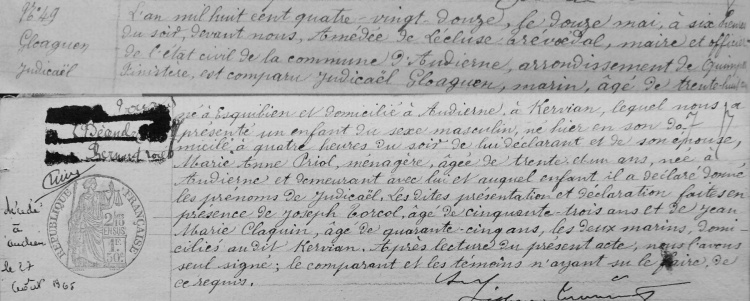 N° 49
Gloaguen
Judicaël
L'an mil huit cent quatre-vingt-douze, le douze mai, à six heures
du soir, devant nous, Amédée de Lécluse Trévoëdal, maire et officier
de l'état civil de la commune d'Audierne, arrondissement de Quimper
Finistère, est comparu Judicaël Gloaguen, marin, âgé de trente-huit ans
né à Esquibien et domicilié à Audierne, à Kervian, lequel nous a
présenté un enfant du sexe masculin, né hier en son do-
micile à quatre heures du soir de lui déclarant et de son épouse,
Marie Anne Priol, ménagère, âgée de trente et un ans, née à
Audierne et demeurant avec lui et auquel enfant il a déclaré donner
les prénoms de Judicaël. Les dites présentation et déclaration faites en
présence de Joseph Corcol, âgé de cinquante-trois ans et de Jean
Marie Claquin, âgé de quarante-cinq ans, les deux marins, domi-
ciliés audit Kervian. Après lecture du présent acte, nous l'avons
seul signé; le comparant et les témoins n'ayant su le faire, de
ce requis.
RÉPUBLIQUE FRANÇAISE
2/10 EN SUS
1F
50c
décédé
à
audierne
le 27
1965